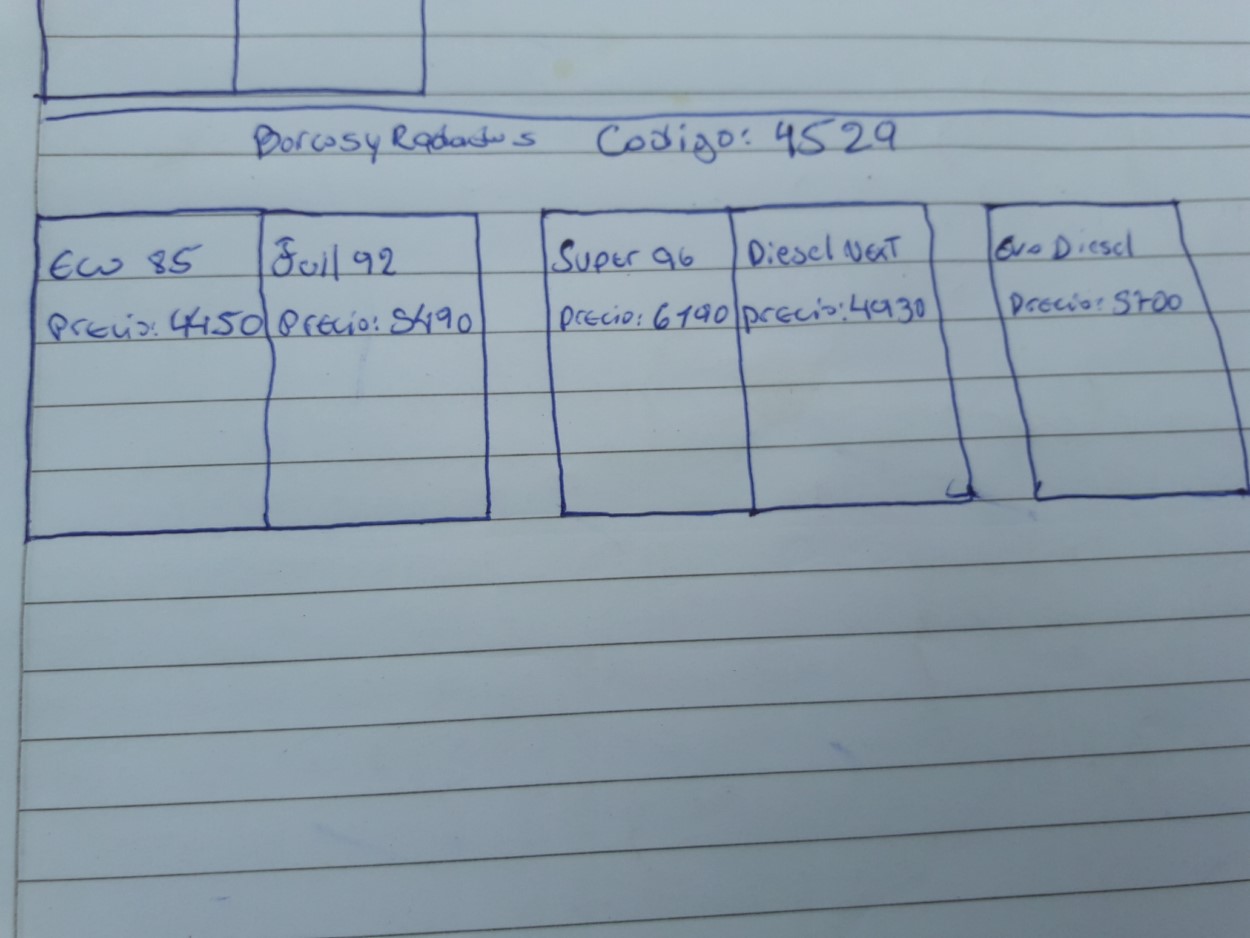 Barcos y Rodados Codigo: 4529
Eco 85
Precio: 4450
Fuil 92
Precio: 5490
Super 96
Precio: 6190
Diesel NExT
precio: 4930
Evo Diesel
Precio: 5700